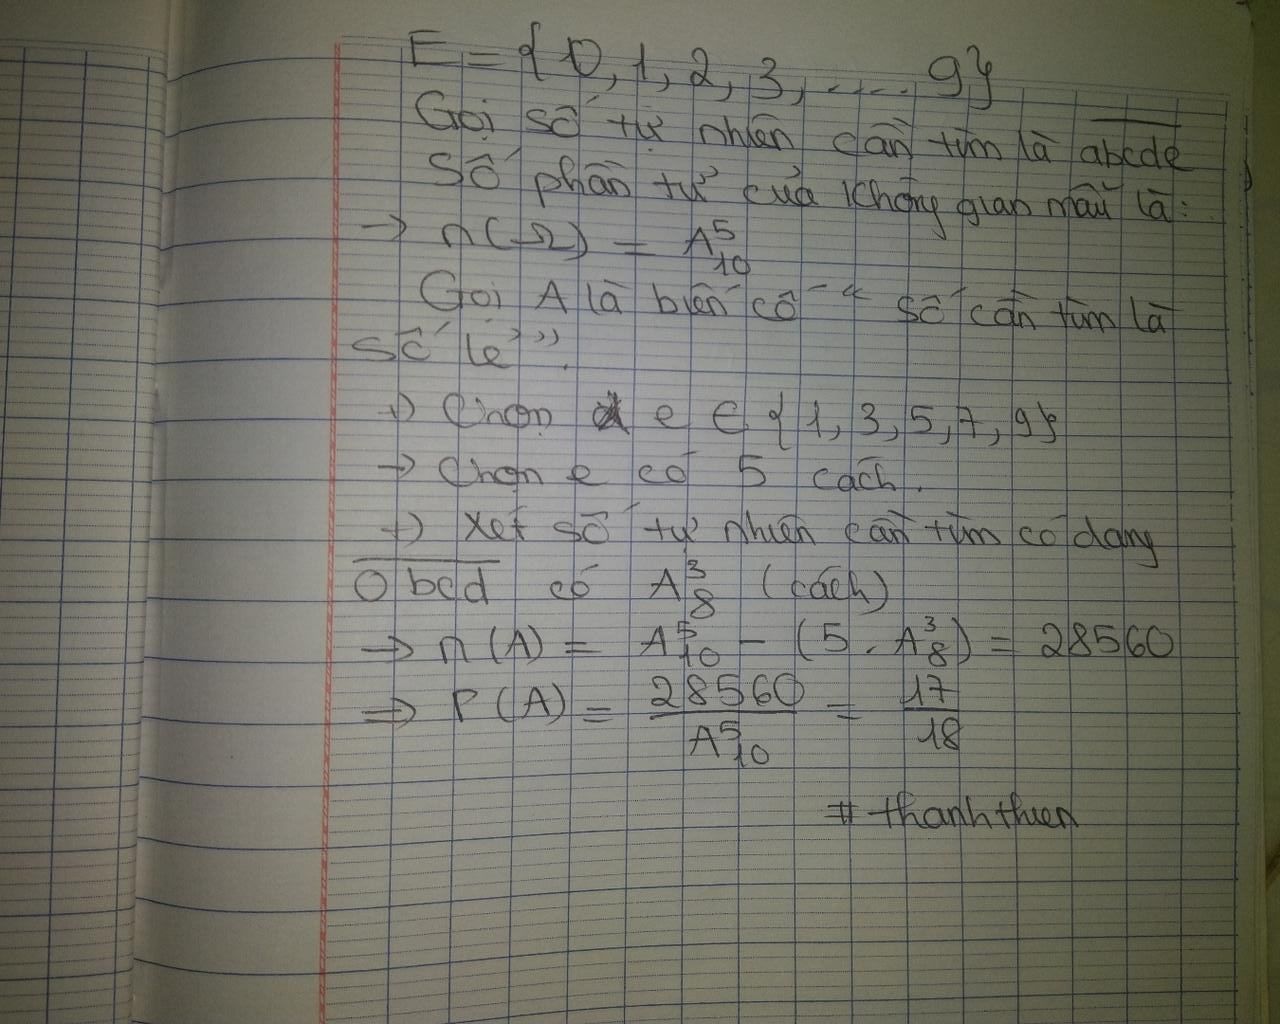 E = {0, 1, 2, 3, ..... 9}
Gọi số tự nhiên cần tìm là abcde
Số phần tử của không gian mẫu là:
→ n(Ω) = A⁵₁₀
Gọi A là biến cố “ số cần tìm là
số lẻ ”.
+) Chọn e ∈ {1, 3, 5, 7, 9}
→ Chọn e có 5 cách.
+) Xét số tự nhiên cần tìm có dạng
0bcd có A³₈ (cách)
=> n(A) = A⁵₁₀ - (5 . A³₈) = 28560
=> P(A) = 28560/A⁵₁₀ = 17/18
# thanhthien